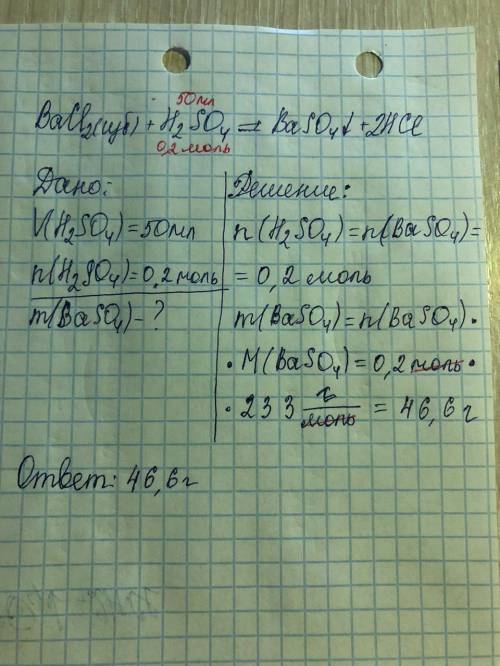 50мл
BaCl₂(изб) + H₂SO₄ = BaSO₄↓ + 2HCl
0,2 моль
Дано:
V(H₂SO₄) = 50мл
n(H₂SO₄) = 0,2 моль
m(BaSO₄) - ?
Решение:
n(H₂SO₄) = n(BaSO₄) =
= 0,2 моль
m(BaSO₄) = n(BaSO₄) ·
· M(BaSO₄) = 0,2 моль ·
· 233 г/моль = 46,6 г
Ответ: 46,6 г